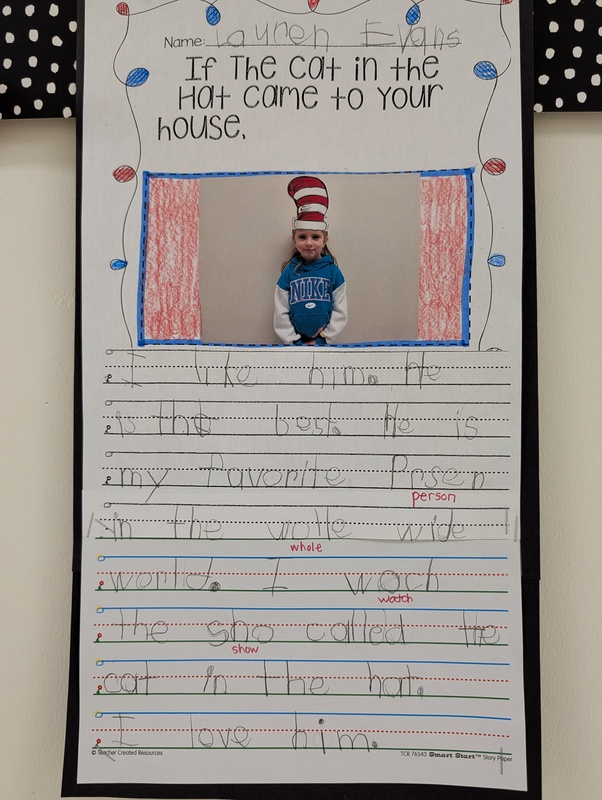 Name: Lauren Evans
If The cat in the
Hat came to Your
house,
NIKE
I like him. He
is the best. He is
my favorite Prsen
person
in the wolle wide
whole
world. I woch
watch
the sho called the
show
cat in the hat.
I love him.
© Teacher Created Resources
TCR 76543 Smart Start™ Story Paper